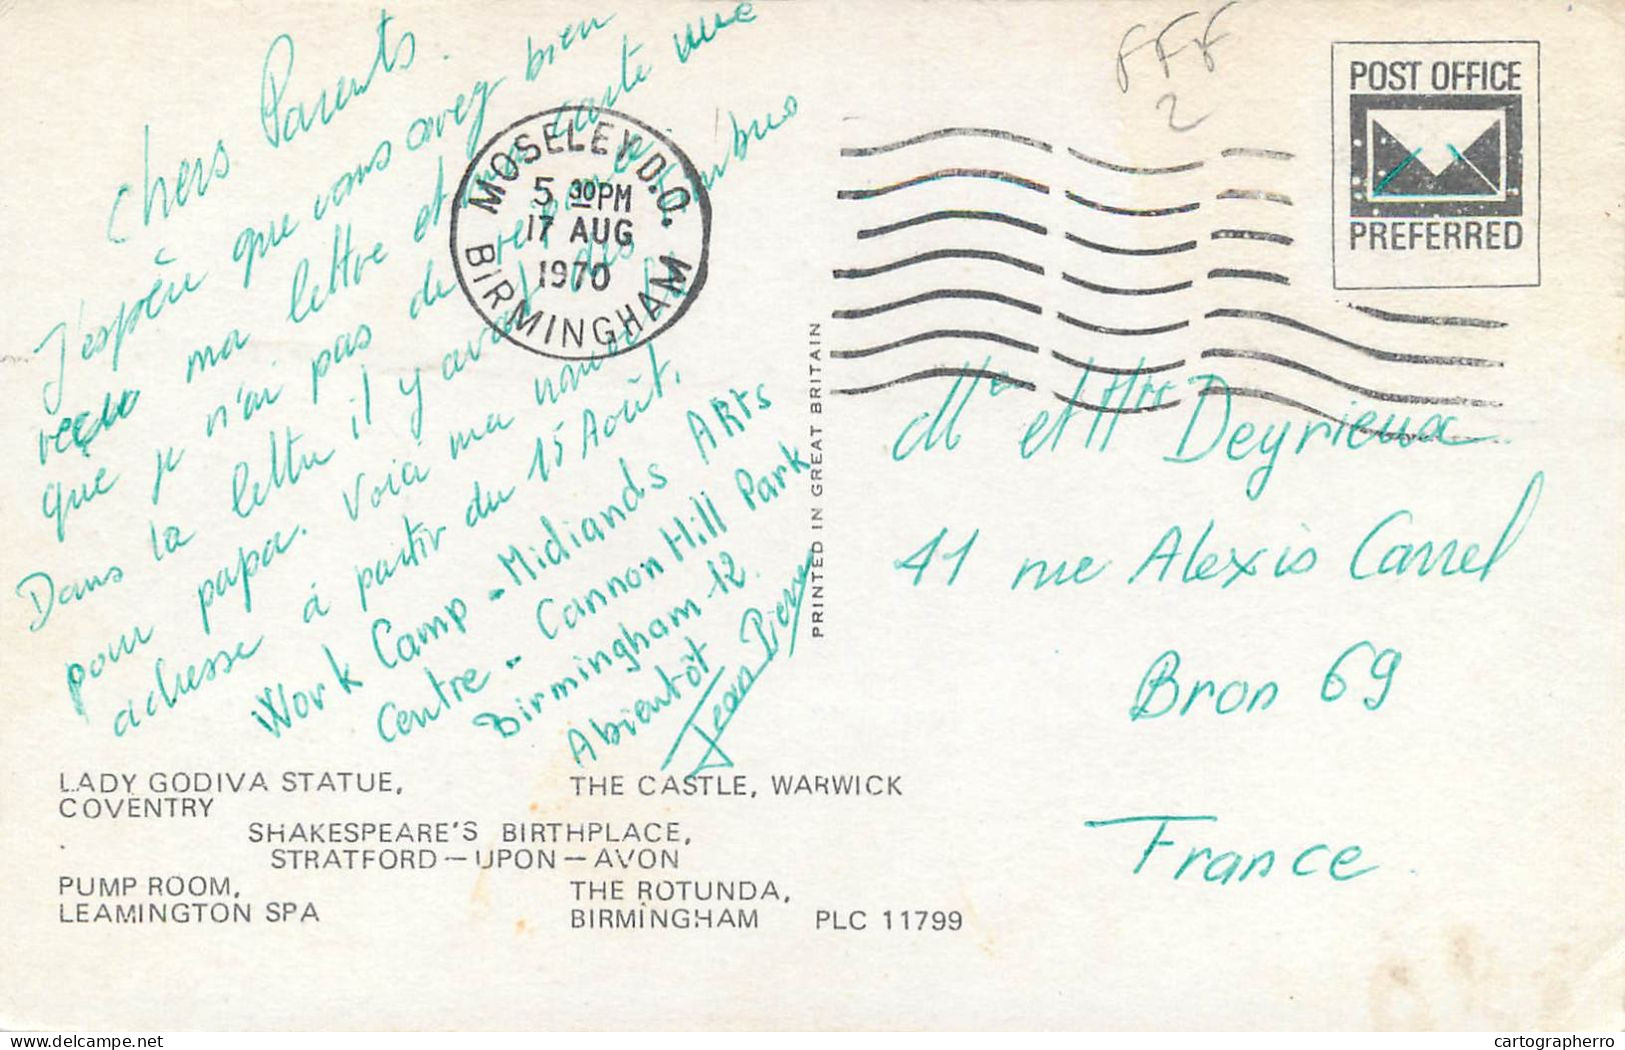 Chers Parents.
J'espère que vous avez bien
reçu ma lettre et ma carte vue
que je n'ai pas de réponse
Dans la lettre il y avait des timbres
pour papa. Voici ma nouvelle
adresse à partir du 15 Août.
Work Camp - Midlands ARts
Centre - Cannon Hill Park
Birmingham 12.
Abientôt
Jean Pierre
MOSELEY D.O.
5 30PM
17 AUG
1970
BIRMINGHAM
FFF
2
POST OFFICE
PREFERRED
PRINTED IN GREAT BRITAIN
Mr et Mme Deyrieux
41 rue Alexis Carrel
Bron 69
France.
LADY GODIVA STATUE,
COVENTRY
THE CASTLE, WARWICK
SHAKESPEARE'S BIRTHPLACE,
STRATFORD—UPON—AVON
PUMP ROOM,
LEAMINGTON SPA
THE ROTUNDA,
BIRMINGHAM PLC 11799
cartographerro